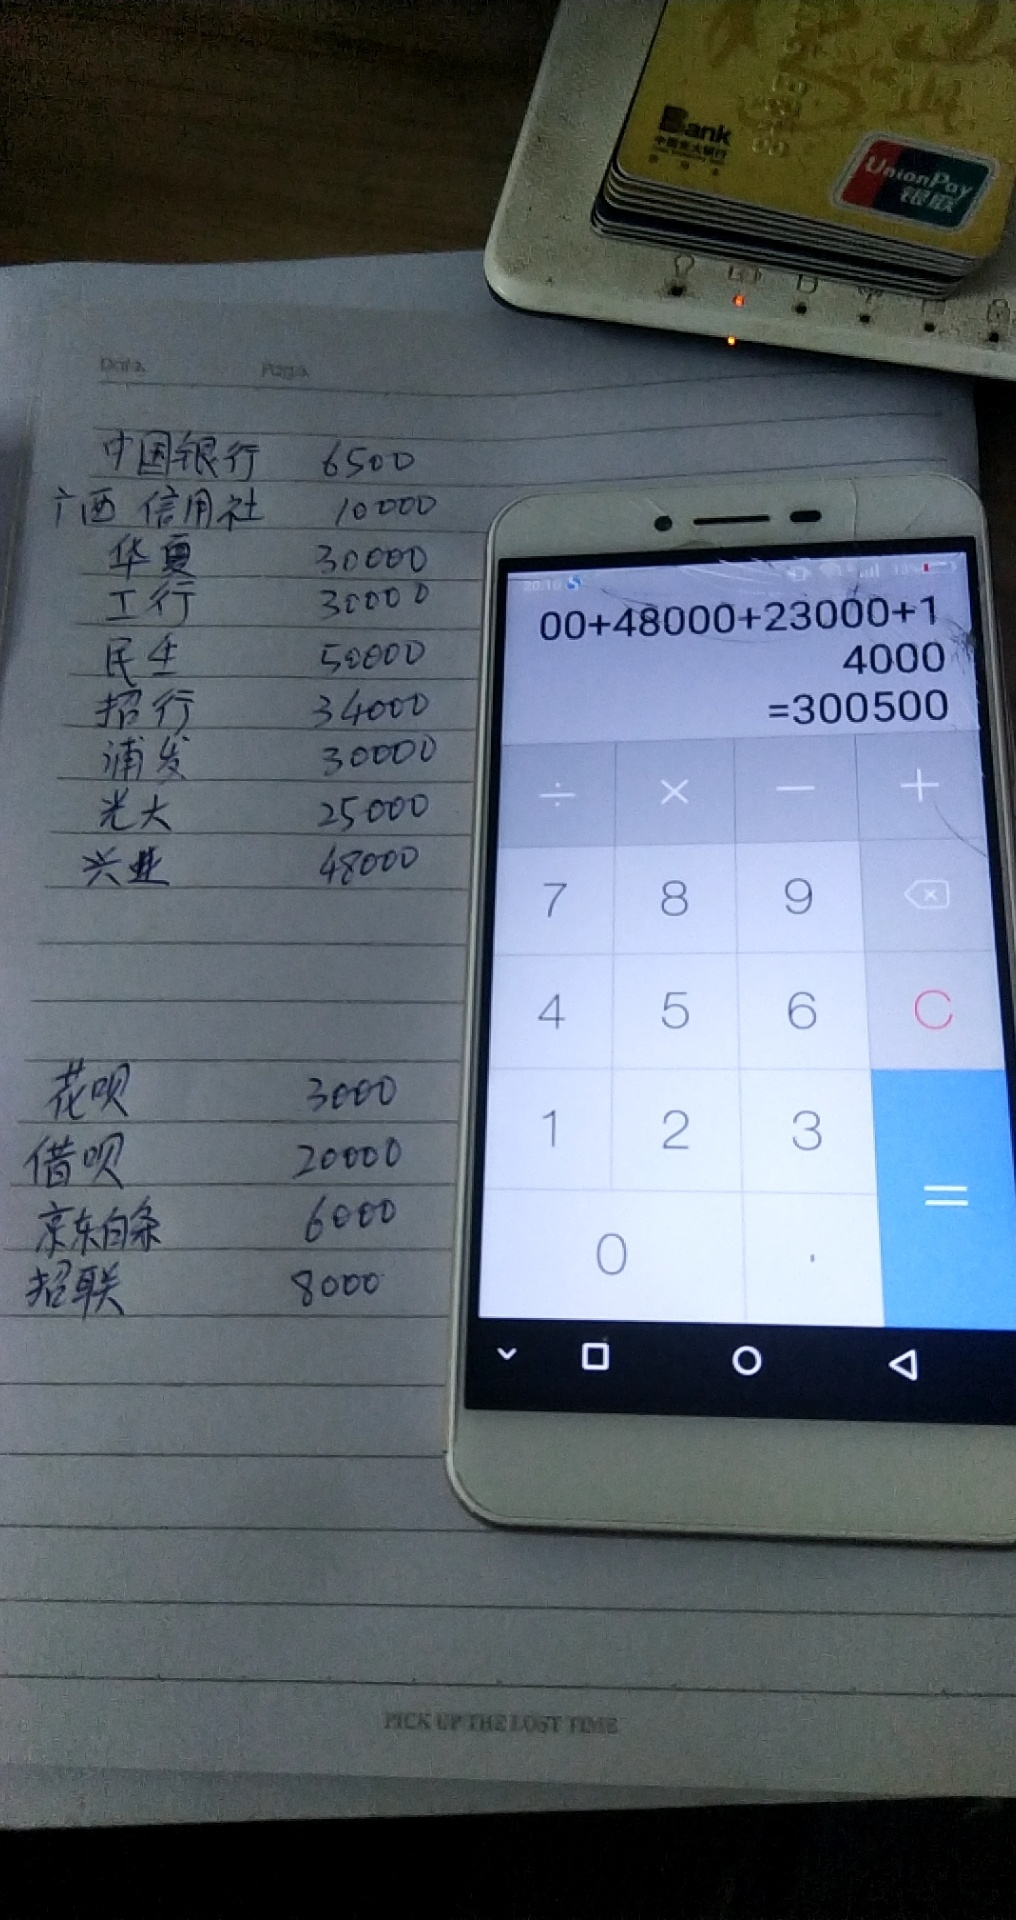 Bank
中国光大银行
UnionPay
银联
Date
Page
中国银行 6500
广西信用社 10000
华夏 30000
工行 30000
民生 50000
招行 34000
浦发 30000
光大 25000
兴业 48000
花呗 3000
借呗 20000
京东白条 6000
招联 8000
20:10
00+48000+23000+1
4000
=300500
÷ × − +
7 8 9
4 5 6 C
1 2 3
0 . =
PICK UP THE LOST TIME